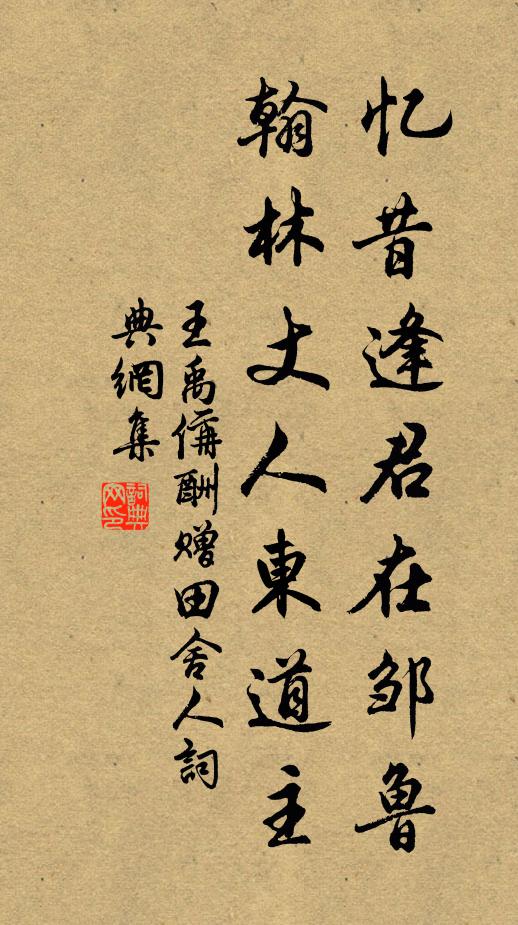 忆昔逢君在邹鲁
翰林丈人東道主
王禹偁酬赠田舍人詞
典網集
詞典
网印